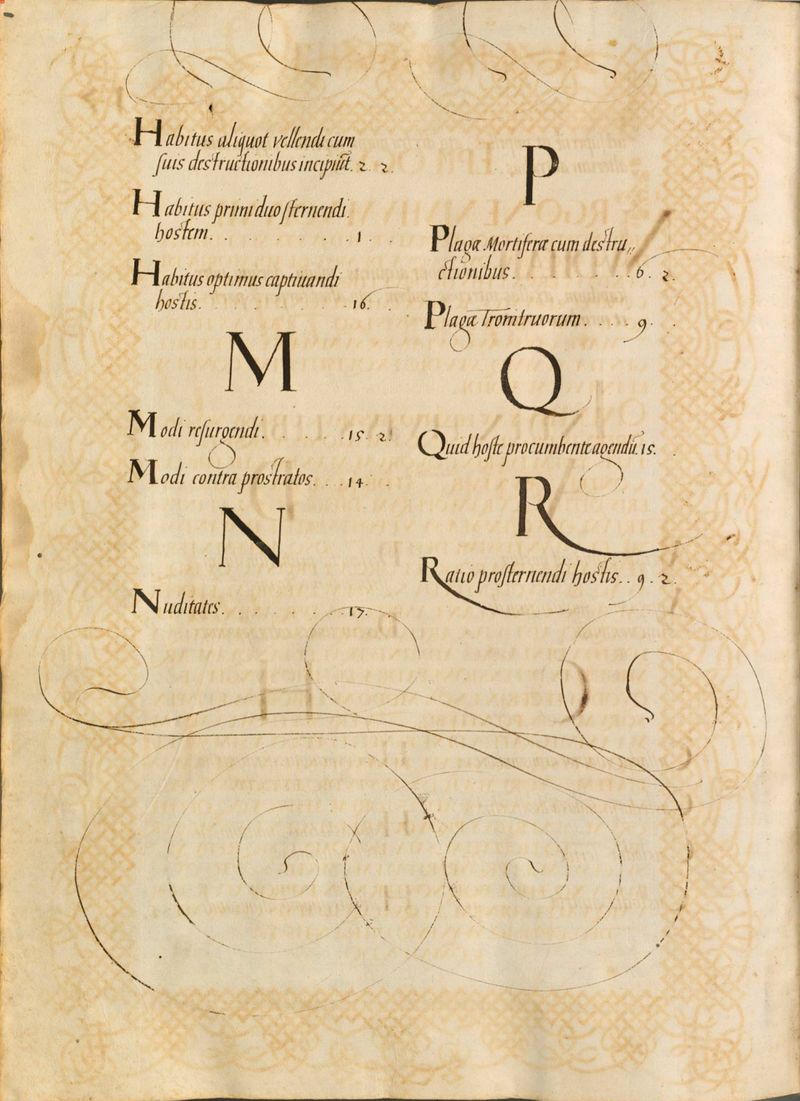 Habitus aliquot vellendi cum
suis destructionibus incipiūt. 2 2.
Habitus primi duo sternendi
hostem. . . . . . . . 1 . .
Habitus optimus captiuandi
hostis. . . . . . . . 16. .
M
Modi resurgendi. . . . . . 15. 2.
Modi contra prostratos. . . 14. .
N
Nuditates. . . . . . . . 17. .
P
Plaga Mortiferæ cum destru„
ctionibus. . . . . . . . 6. 2.
Plaga . . . . 9. .
Q
Quid hoste procumbente agendū. 15. .
R
Ratio prosternendi hostis. . 9. 2.